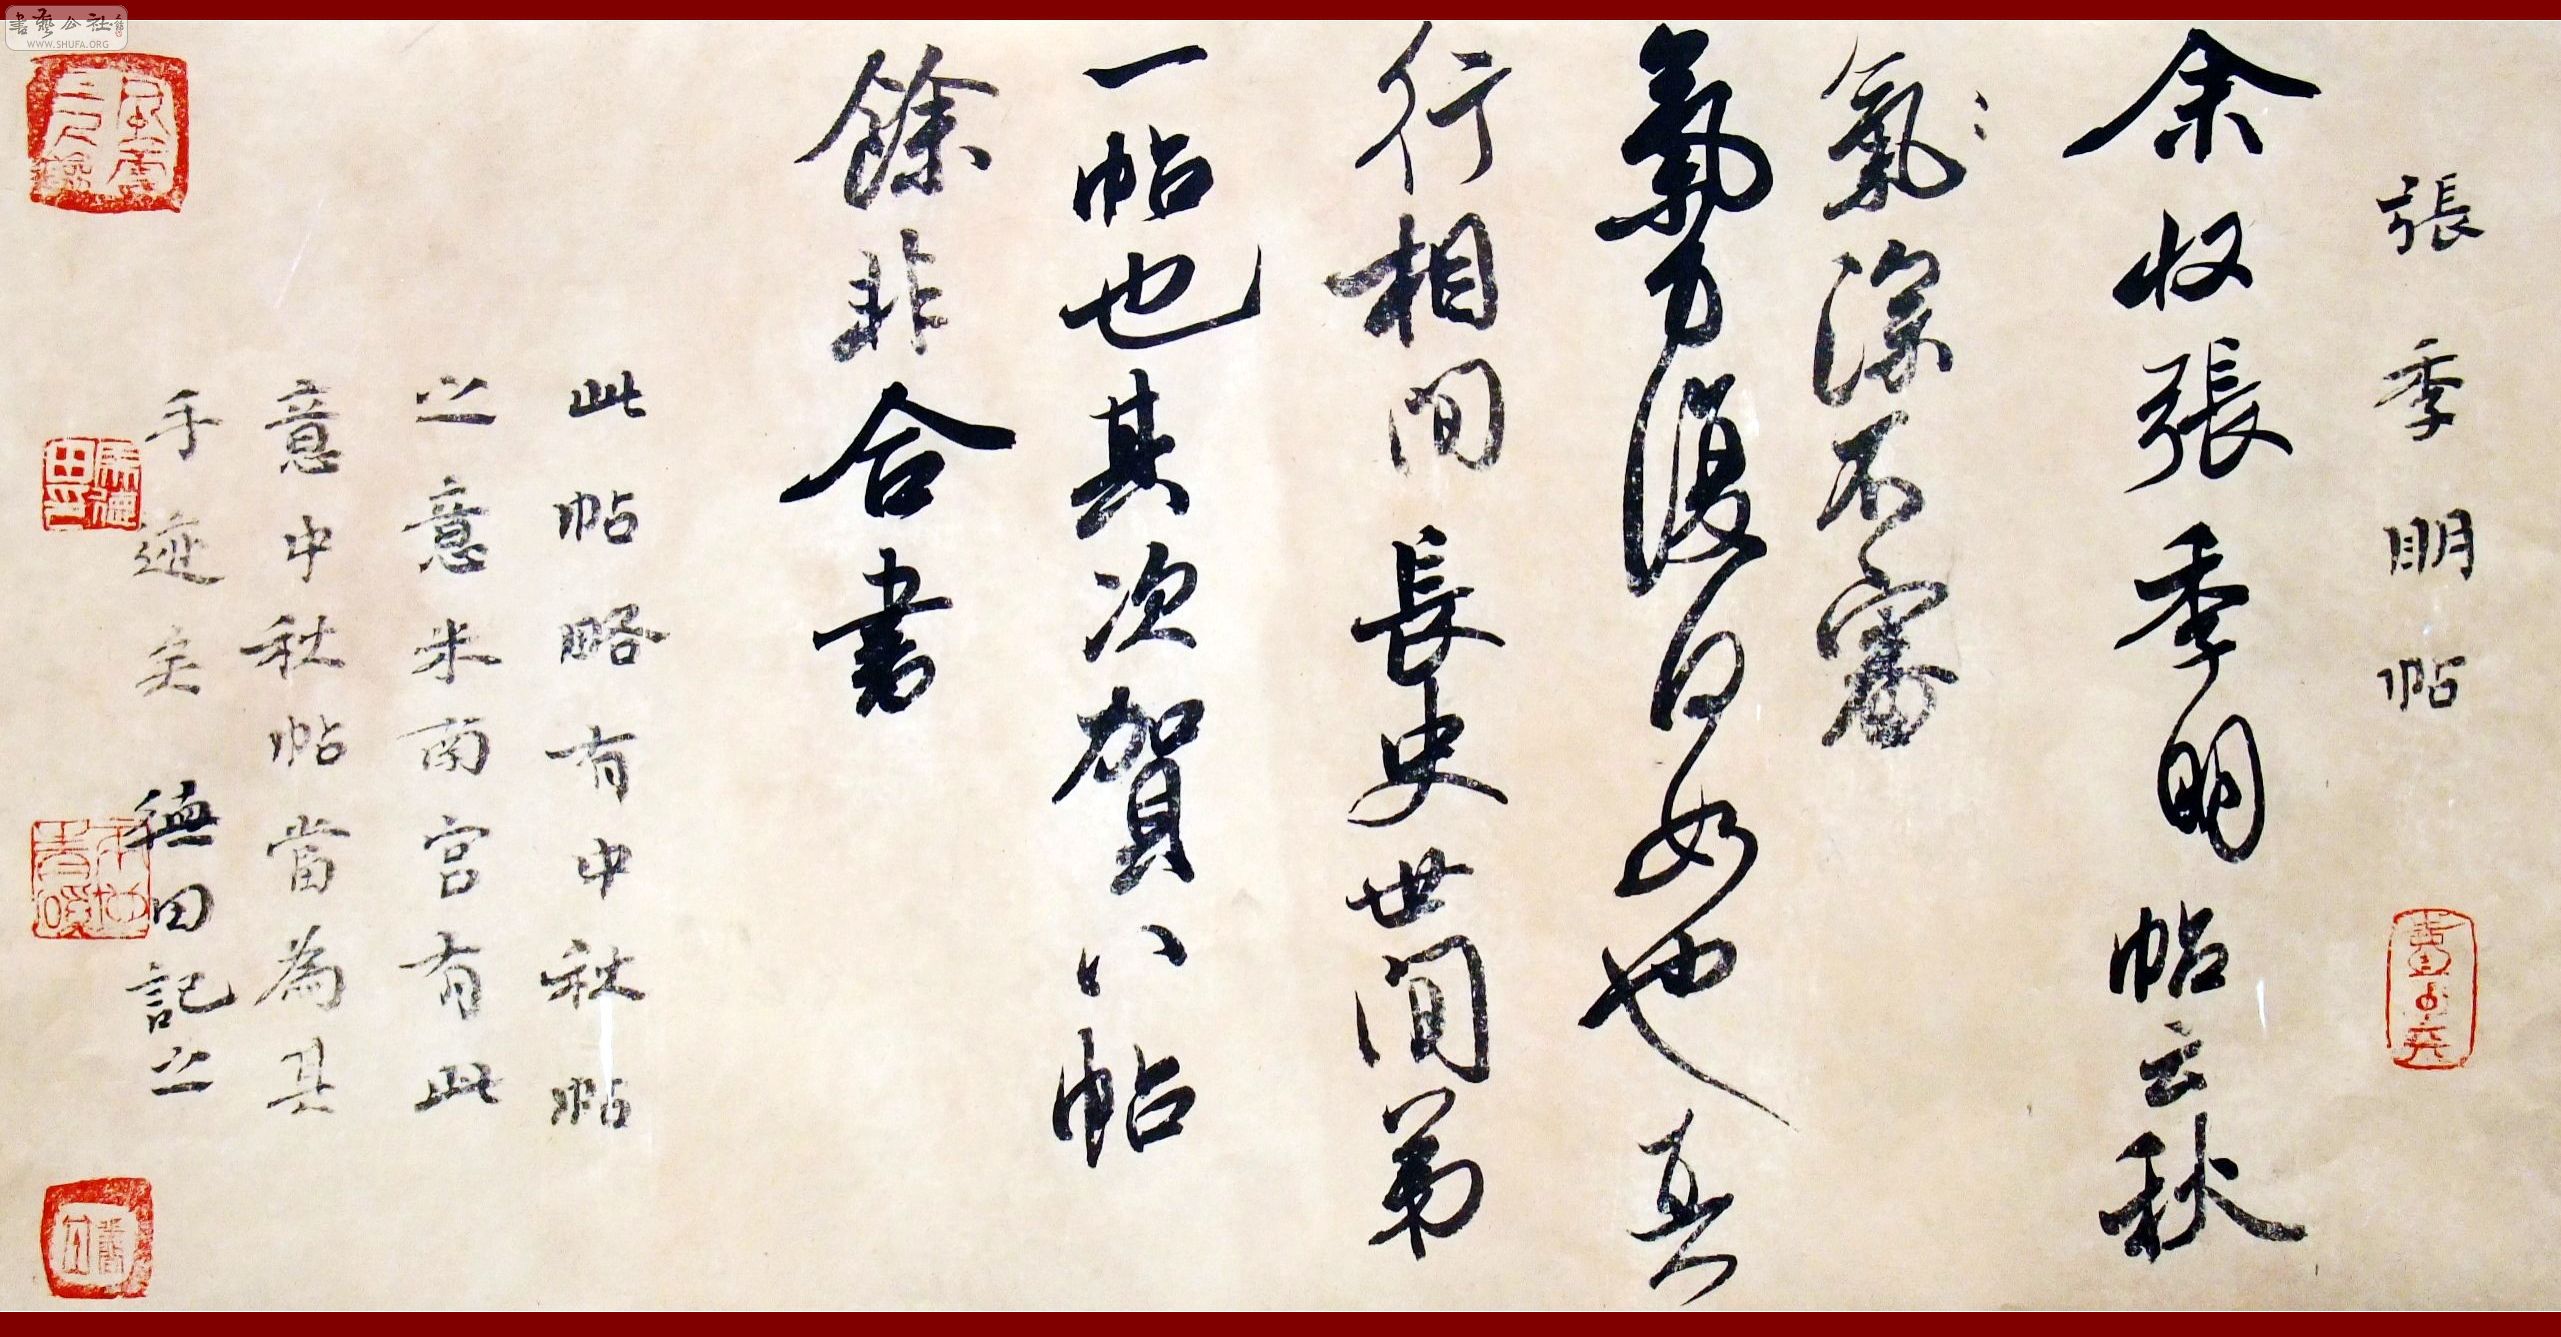 書藝公社
WWW.SHUFA.ORG
張季明帖
余収張季明帖云秋
氣深不審
氣力復何如也真
行相間長史世間第
一帖也其次賀八帖
餘非合書
此帖略有中秋帖
之意米南宮有此
意中秋帖當為其
手迹矣 德田記之